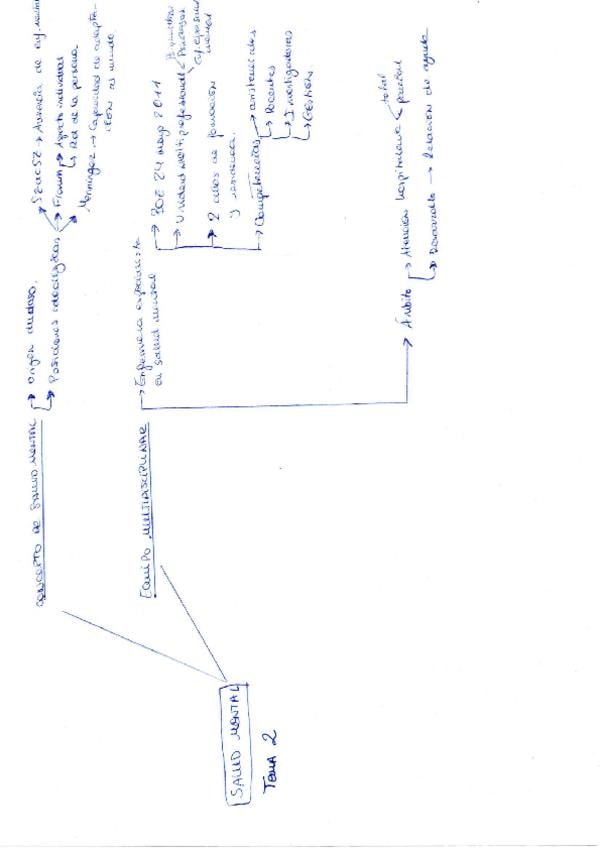 TEMA 2
SALUD MENTAL
CONCEPTO DE SALUD MENTAL
→ Origen dudoso.
→ Posiciones ideológicas
→ Ausencia de enf. mental
Fromm → Aspecto individual
→ Rol de la persona
Menninger → Capacidad de adapta-
ción al mundo
EQUIPO MULTIDISCIPLINAR
→ Enfermera especialista
en salud mental
→ BOE 24 mayo 2011
→ Unidad multiprofesional
→ 2 años de formación
y residencia.
→ Competencias → asistenciales
→ Docentes
→ Investigadoras
→ Gestión.
→ Ámbito → Atención hospitalaria
total
parcial
→ Desarrollo → Relación de ayuda